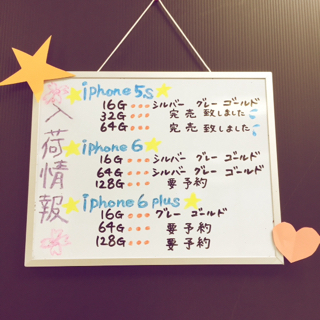 入荷情報
iphone 5s
16G ••• シルバー グレー ゴールド
32G ••• 完売致しました
64G ••• 完売致しました
iphone 6
16G ••• シルバー グレー ゴールド
64G ••• シルバー グレー ゴールド
128G ••• 要予約
iphone 6 plus
16G ••• グレー ゴールド
64G ••• 要予約
128G ••• 要予約